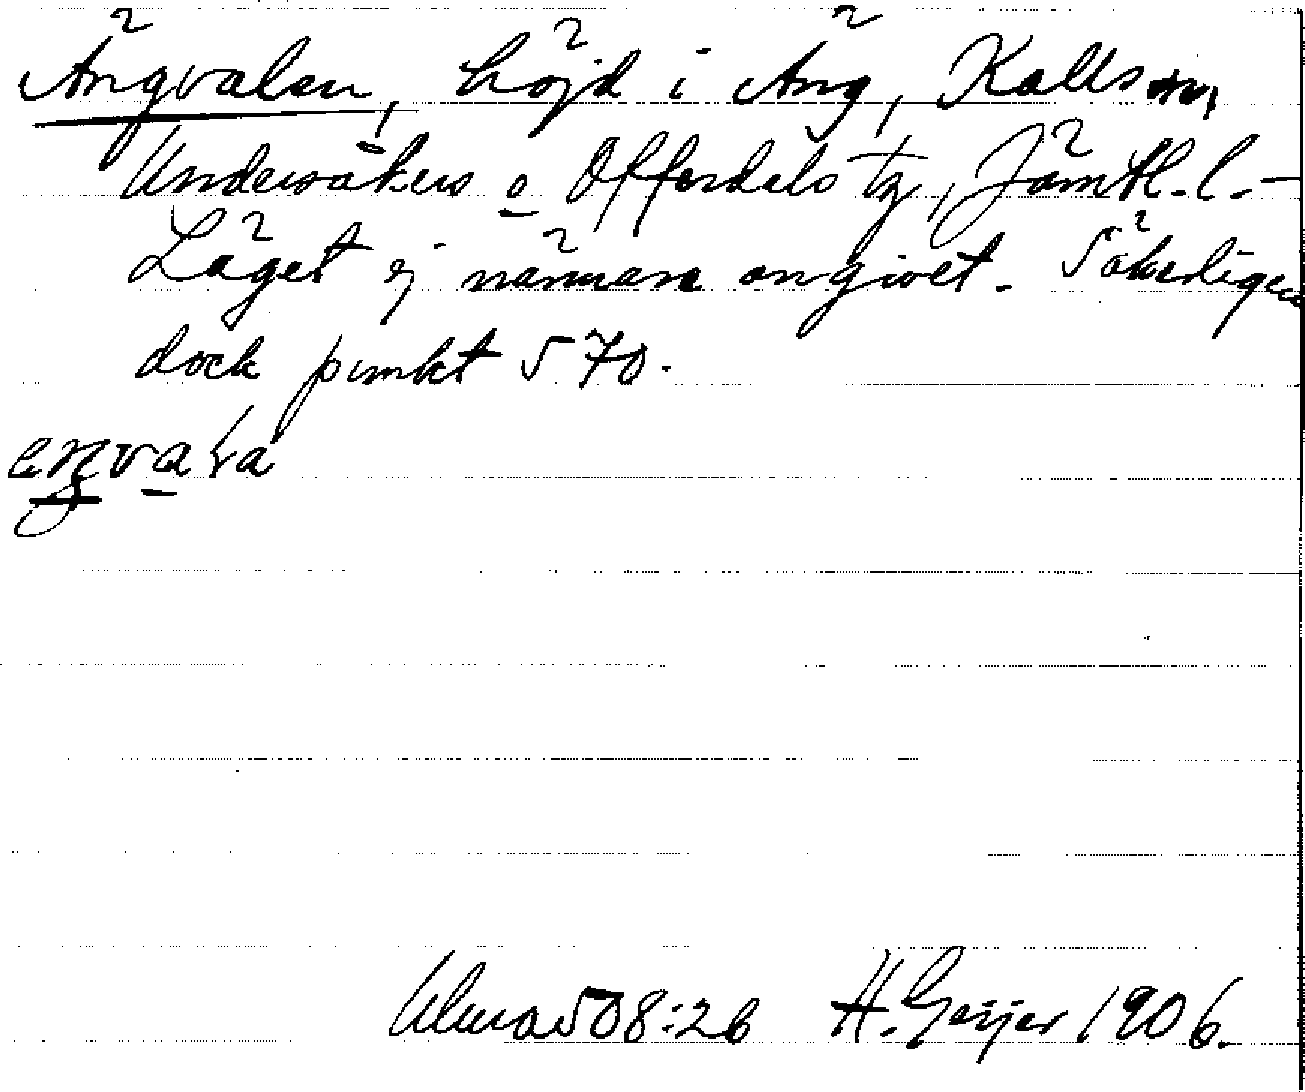 Ängvalen, höjd i Äng, Kalls sn,
Undersåkers o Offerdals tg, Jämtl. l. —
Läget ej närmare angivet. Säkerligen
dock punkt 570.
Ulma 508:26 H. Geijer 1906.